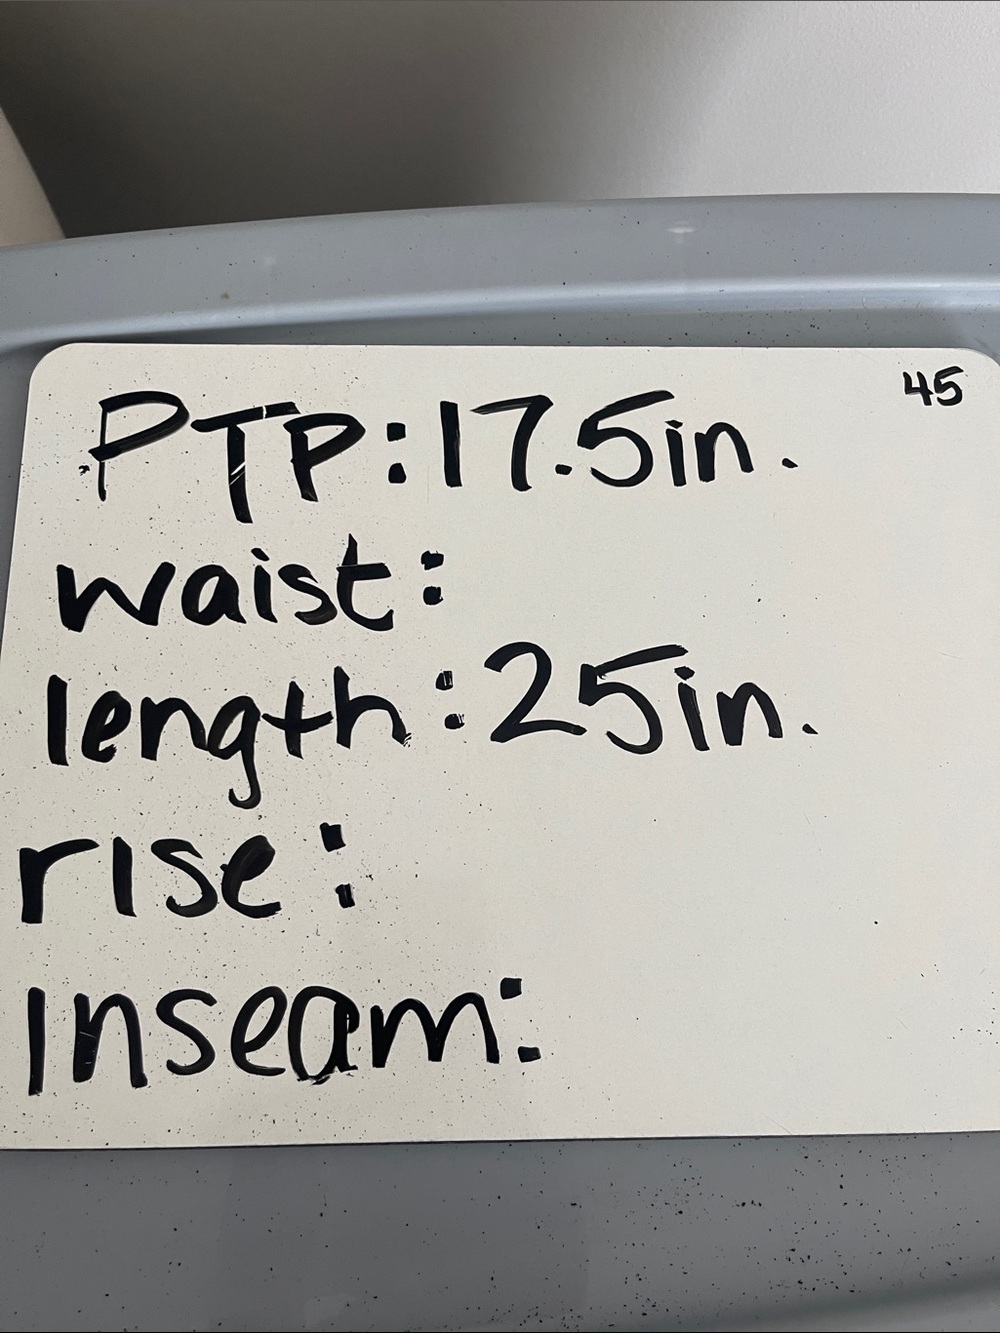 45
PTP:17.5in.
waist:
length:25in.
rise:
Inseam: